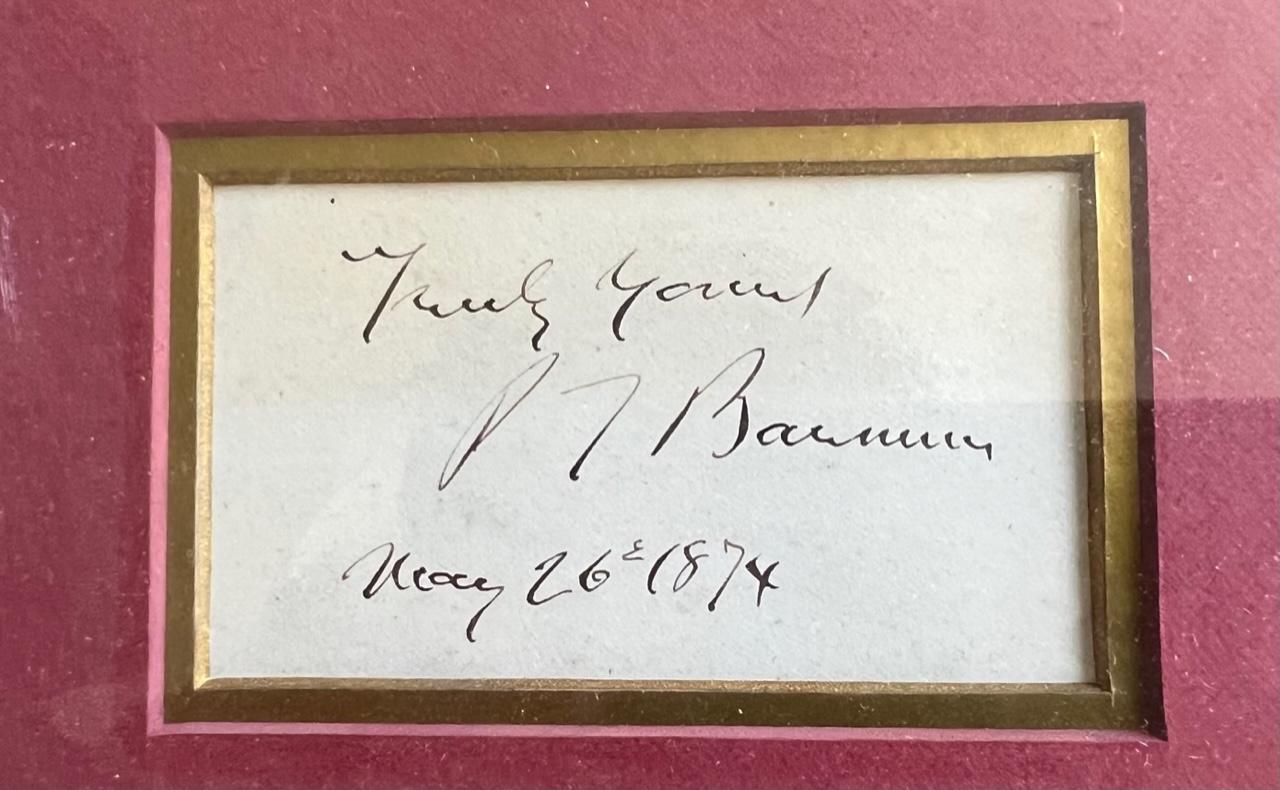 Truly Yours
P T Barnum
May 26th 1874